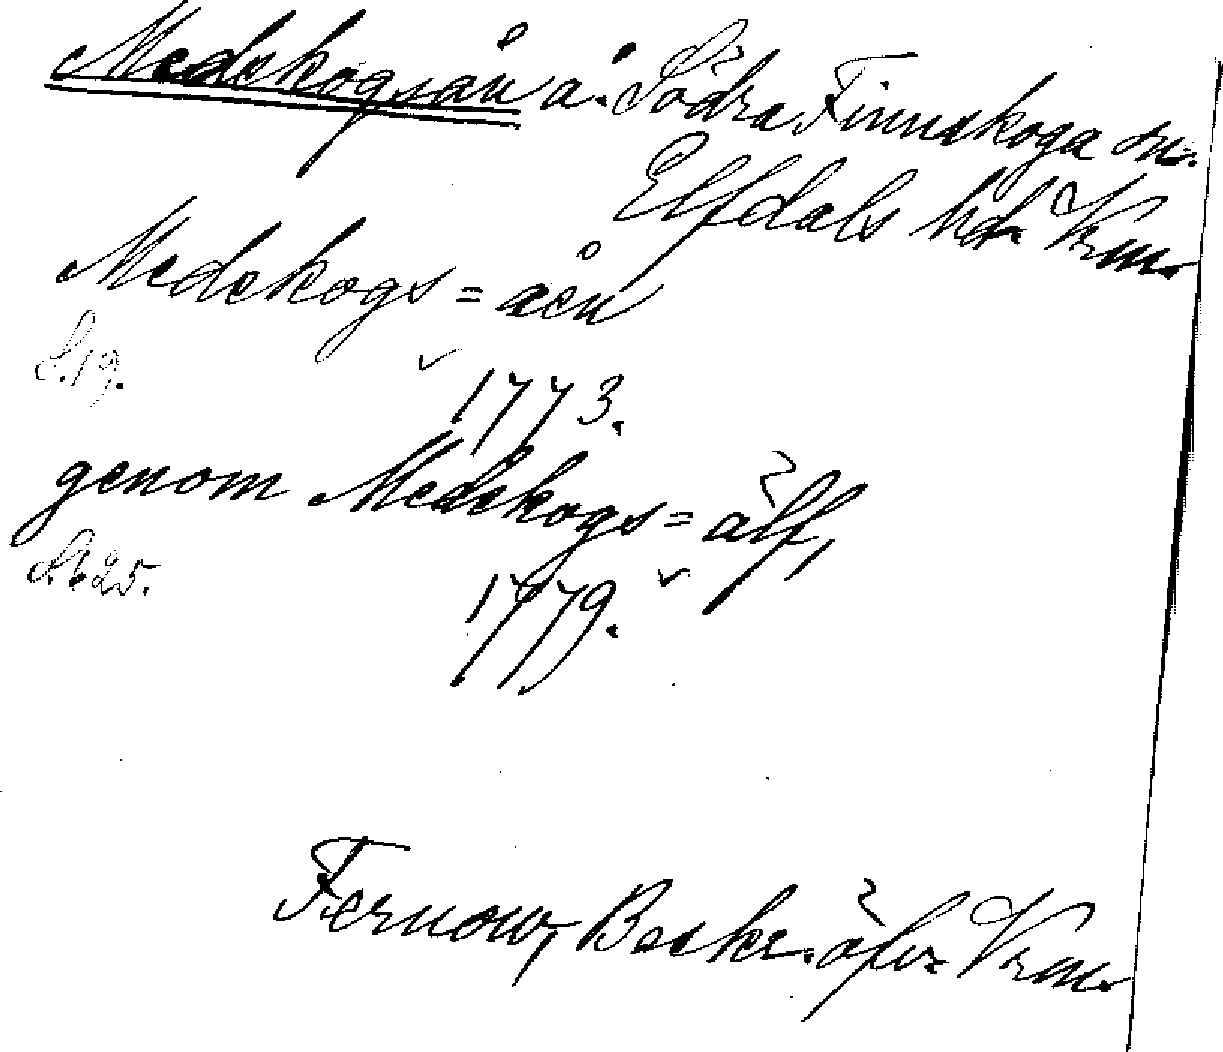 Medskogsån å. Södra Finnskoga sn.
Elfdals hd. Vrm.
Medskogs=åen
S. 19.
1773.
genom Medskogs=älf,
S. 625.
1779.
Fernow, Beskr. öfver Vrm.